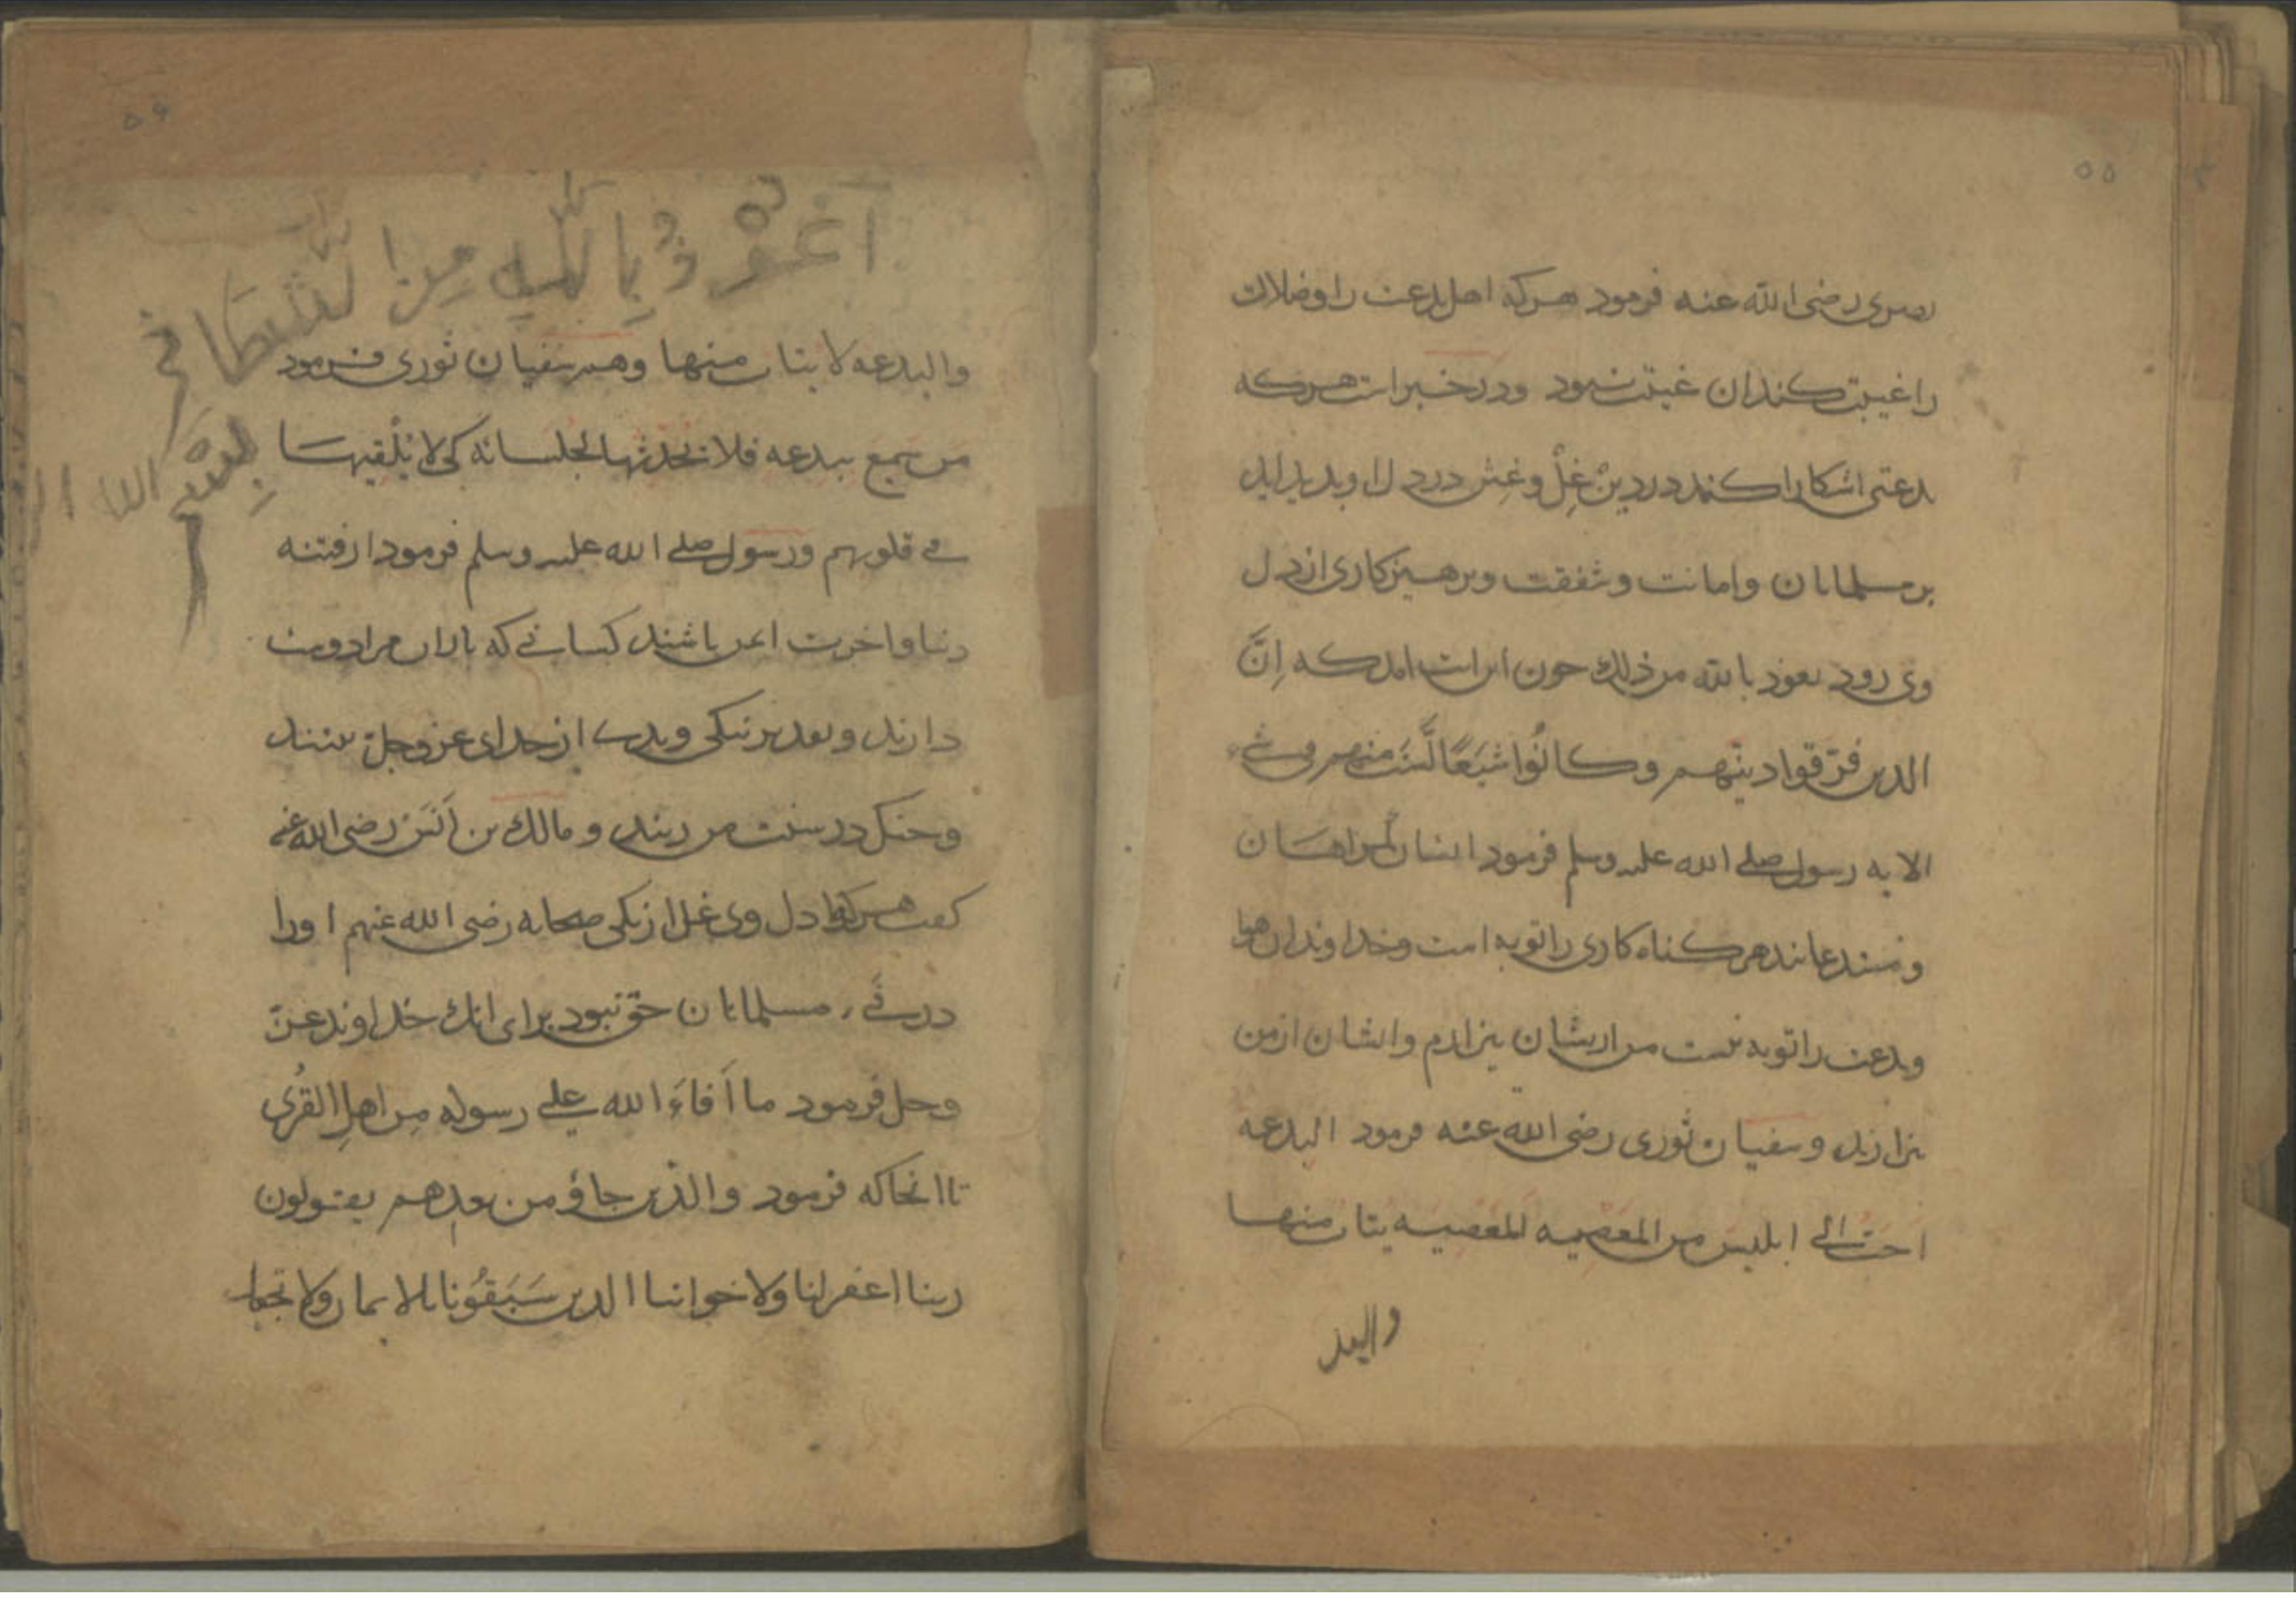 ۵۵
بصری رضی الله عنه فرمود هرکه اهل بدعت را وضلالت
را غیبت کند ان غیبت نبود ودر خبر است هرکه
بدعتی اشکارا کند در دین غِلّ وغِش در دل او بدید اید
بر مسلمانان وامانت وشفقت وبرهیزکاری از دل
وی رود نعوذ بالله من ذلك چون این ایت امد که اِنَّ
الذین فرّقوا دینهم وکانُوا شیَعًا لَّستَ منهم فی شیء
الایه رسول صلے الله علیه وسلم فرمود ایشان کمراهان
ومبتدعانند هر کناه کاری را توبه است وخداوندان هوا
وبدعت را توبه نیست من از یشان بیزارم وایشان از من
بیزارند وسفیان ثوری رضی الله عنه فرمود البدعه
احبّ الی ابلیس من المعصیه المعصیه یتاب منها
والبد
۵۶
اعوذ بالله من
بسم
والبدعه لا یتاب منها وهم سفیان ثوری فرمود
من سمع ببدعه فلا یحدثها لجلسائه کی لا یُلْقیها
فے قلوبهم ورسول صلے الله علیه وسلم فرمود از فتنه
دنیا واخرت ایمن باشند کسانے که یاران مرا دوست
دارند وتقدیر نیکی وبدی از خدای عزوجل بینند
وچنکل در سنت من زنند ومالك بن اَنَس رضی الله عنه
کفت هر کرا در دل وی غل از یکی صحابه رضی الله عنهم اورا
در فَے مسلمانان حق نبود برای انك خداوند عزّ
وجل فرمود ما اَفاءَ الله علے رسوله مِن اهلِ القُری
تا انجا که فرمود والذین جاؤ من بعدهم یقولون
ربنا اغفر لنا ولاخواننا الذین سَبَقُونا بالایمان ولا تجعل